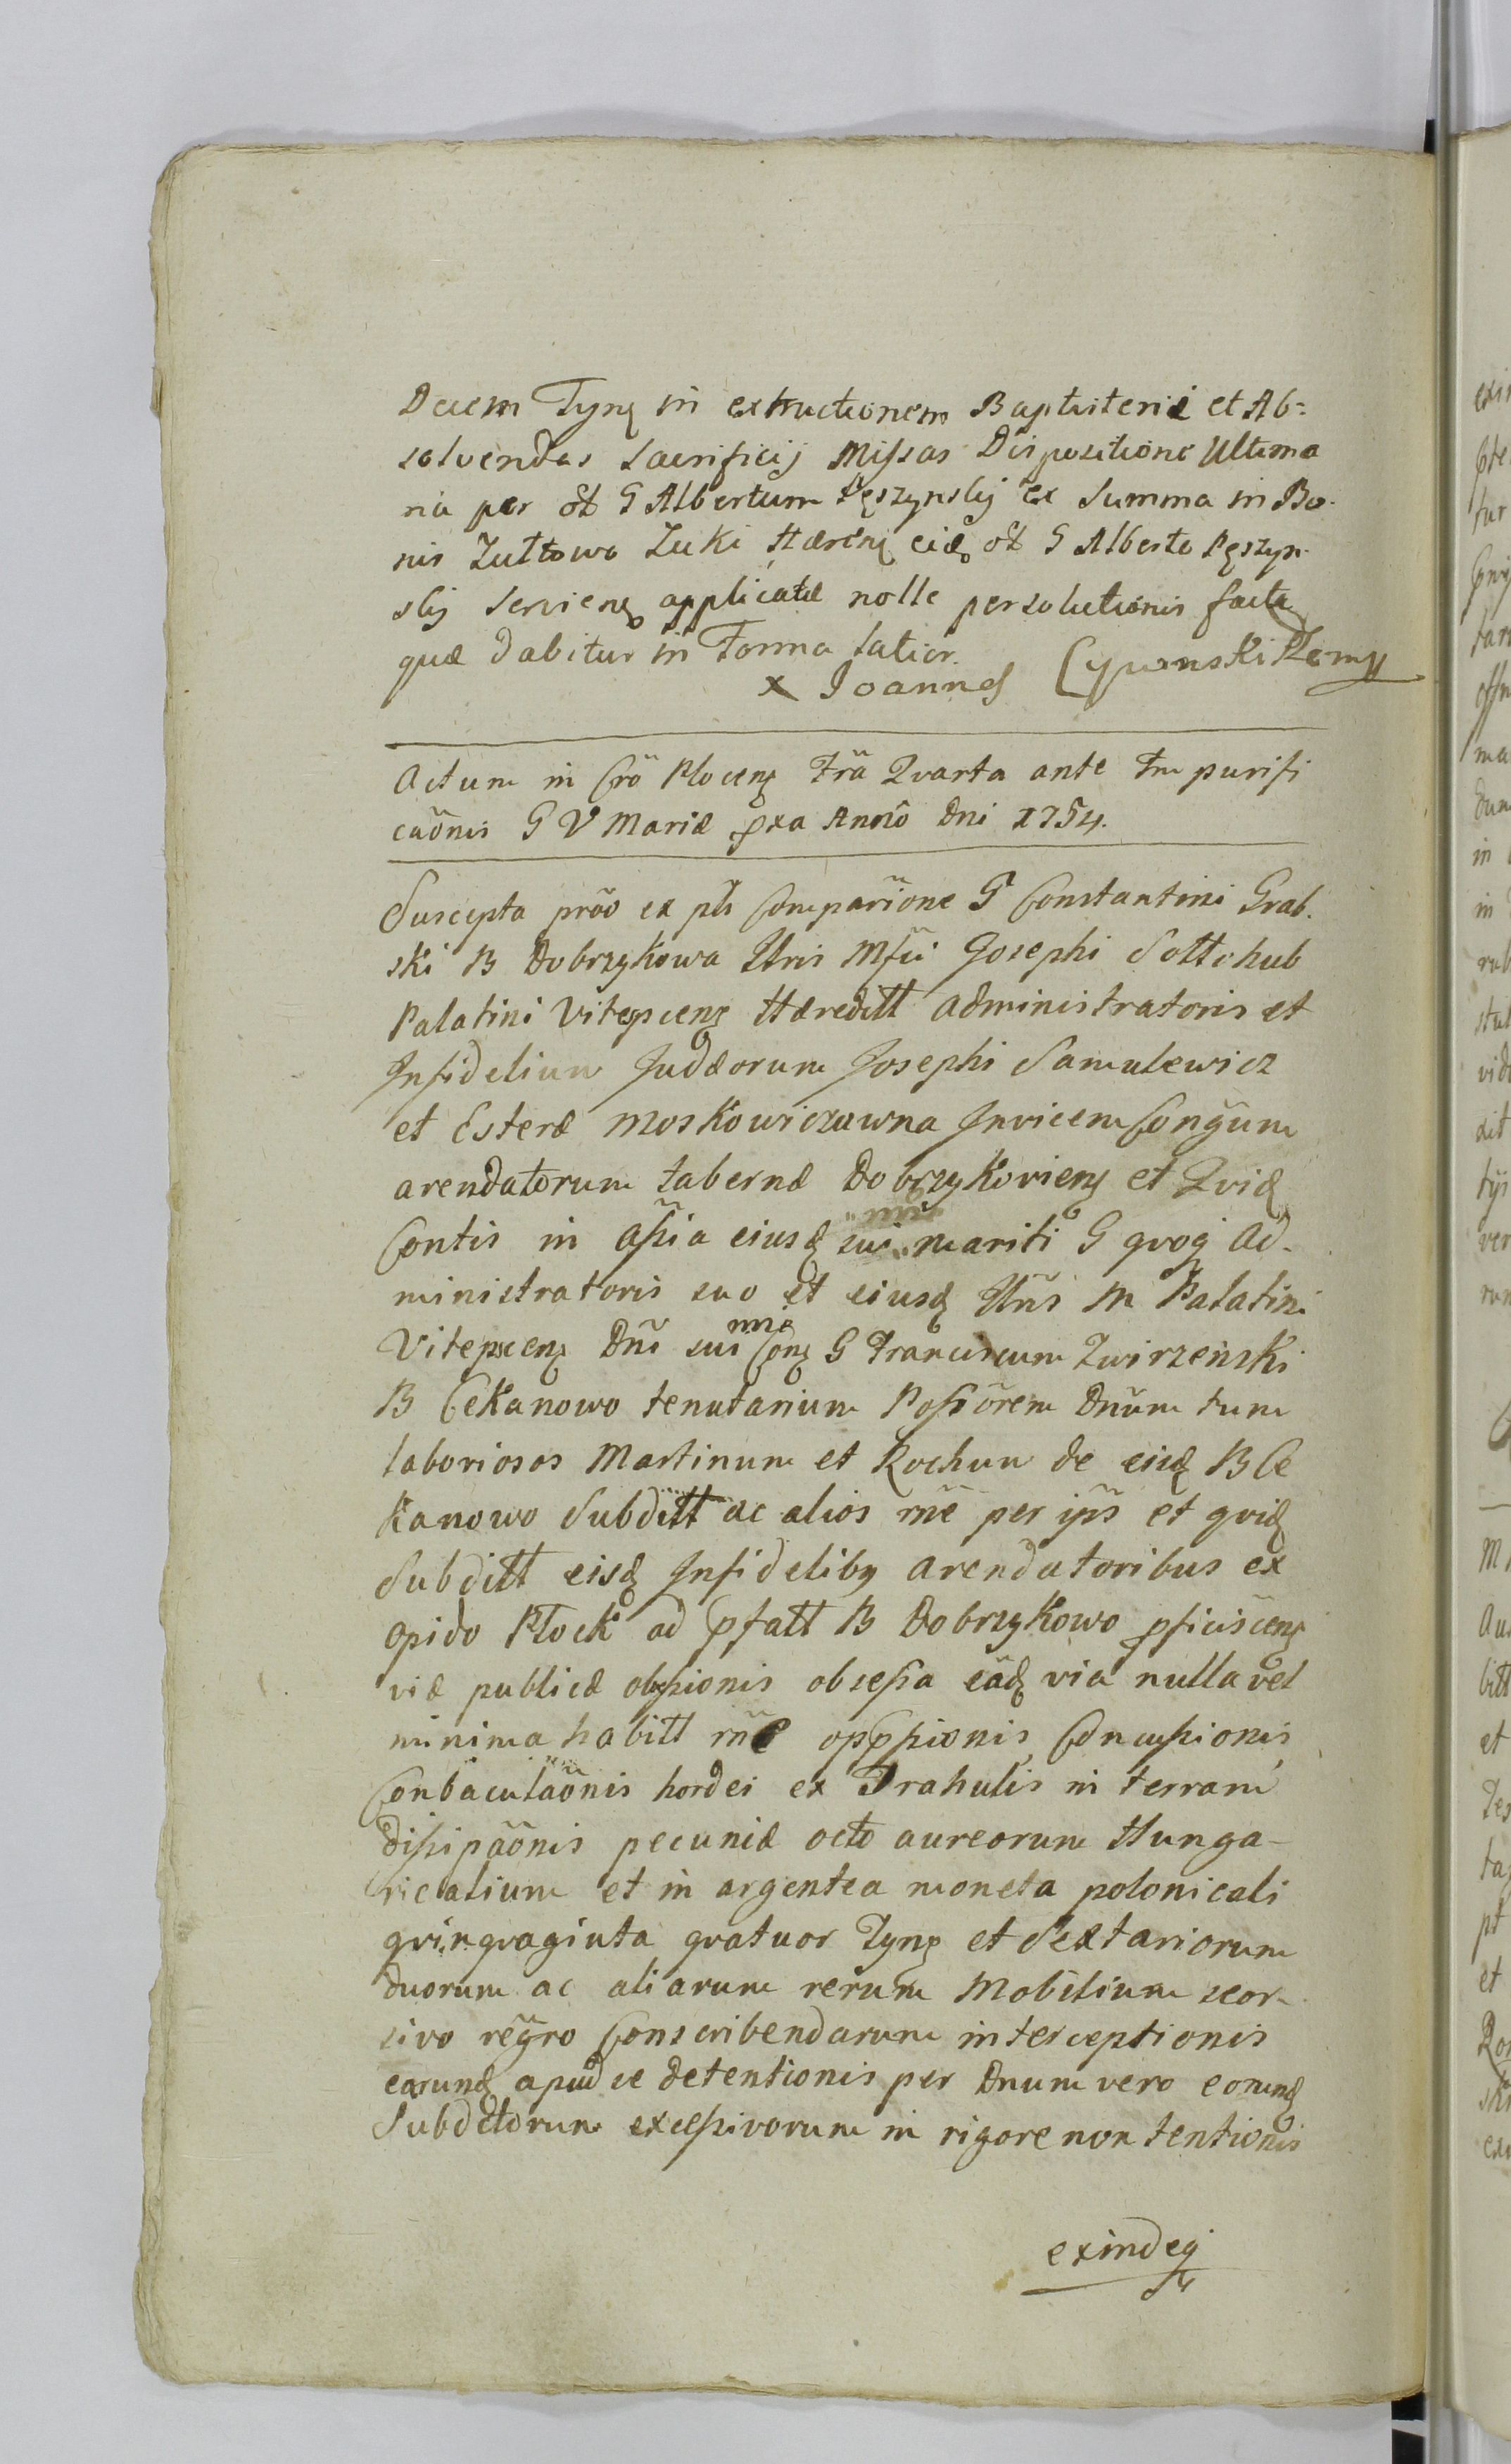 Decem Tyng in extructionem Baptisterii et Ab=
solvendas sacrificij Missas Dispositione Ultima
ria per ol G Albertum Pęszynsky ex Summa in Bo-
nis Zułtowo Zuki Hæreng eid ol G Alberto Pęszyn-
sky serviens applicatæ nolle persolutionis facta
quæ dabitur in Forma latior.
x Joannes Cywinski
Actum in Cro Ploceng Fra Qvarta ante Fm purifi
caõnis G V Mariæ pxa Anno Dni 1754.
Suscepta prão ex pti Comparione G Constantini Grab-
ski B Dobrzykowa Illris Mfci Josephi Sołłohub
Palatini Vitepsceng Hæreditt administratoris et
Infidelium Judæorum Josephi Samulewicz
et Esteræ Moskowiczowna Invicem Congum
arendatorum tabernæ Dobrzykovieng et Qvid
Contis in assia eiusd sui mariti G qvoq Ad-
ministratoris suo et eiusd Illris M Palatini
Vitepsceng Dni sui nnie Cong G Franciscum Zwirzeinski
B Cekanowo tenutarium Possorem Dnum tum
laboriosos Martinum et Rochum de eisd B Ce
kanowo Subditt ac alios rne per ipis et qvid
Subditt eisd Infideliby arendatoribus ex
opido Płock ad pfatt B Dobrzykowo pficisceng
viæ publicæ obssionis obsessa eãd via nulla vel
minima habitt rne oppssionis Concussionis
Conbaculaõnis hordei ex Trahulis in terram
dissipaõnis pecuniæ octo aureorum Hunga-
ricalium et in argentea moneta polonicali
qvinqvaginta qvatuor Tyng et Sextariorum
duorum ac aliarum rerum Mobilium seor-
sivo regro Conscribendarum interceptionis
earund apud se detentionis per Dnum vero eorund
Subdttorum excessivorum in rigore non tentionis
exindeq